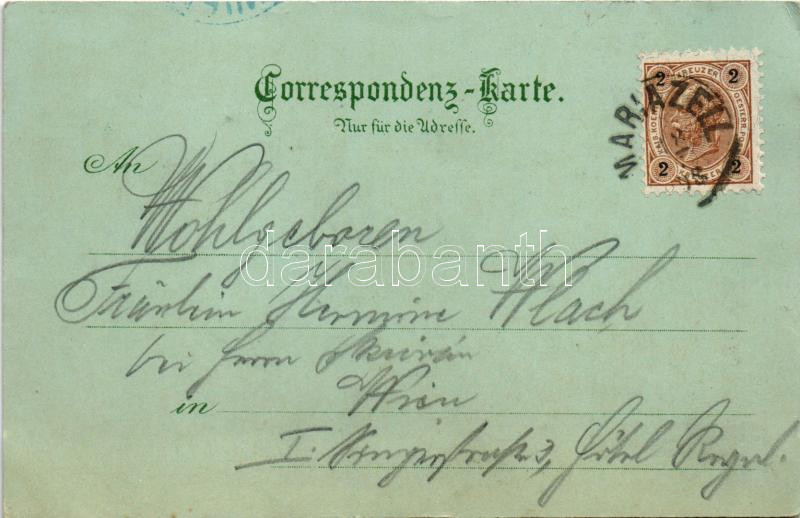 Correspondenz-Karte.
Nur für die Adresse.
MARIAZELL
2 KREUZER 2
2 2
An
Wohlgeboren
Fräulein Hermine Wlach
bei Herrn
in Wien
I. 3, Hôtel Royal.
darabanth